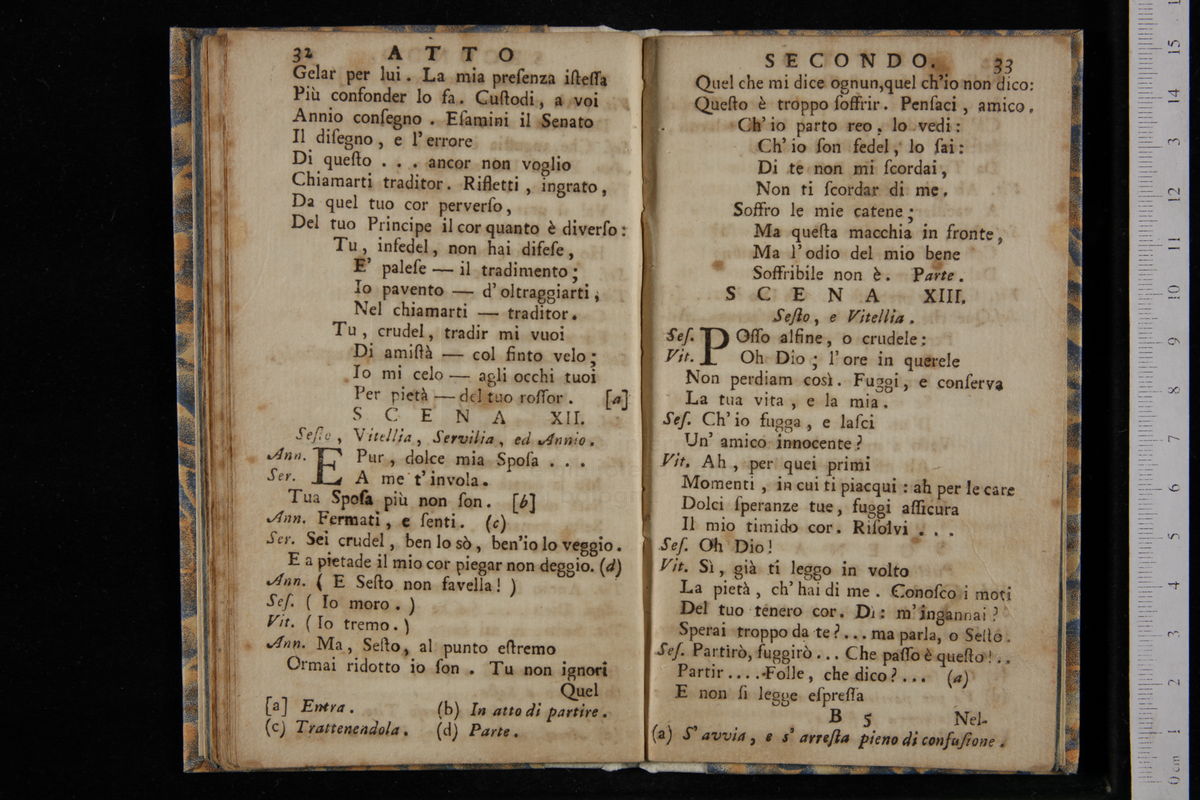 32 ATTO
Gelar per lui. La mia preſenza iſteſſa
Più confonder lo fa. Cuſtodi, a voi
Annio conſegno. Eſamini il Senato
Il diſegno, e l'errore
Di queſto . . . ancor non voglio
Chiamarti traditor. Rifletti, ingrato,
Da quel tuo cor perverſo,
Del tuo Principe il cor quanto è diverſo:
Tu, infedel, non hai difeſe,
E' paleſe — il tradimento;
Io pavento — d'oltraggiarti;
Nel chiamarti — traditor.
Tu, crudel, tradir mi vuoi
Di amiſtà — col finto velo;
Io mi celo — agli occhi tuoi
Per pietà — del tuo roſſor. [a]
SCENA XII.
Seſto, Vitellia, Servilia, ed Annio.
Ann. E Pur, dolce mia Spoſa . . .
Ser. A me t'invola.
Tua Spoſa più non ſon. [b]
Ann. Fermati, e ſenti. (c)
Ser. Sei crudel, ben lo sò, ben'io lo veggio.
E a pietade il mio cor piegar non deggio. (d)
Ann. ( E Seſto non favella! )
Seſ. ( Io moro. )
Vit. ( Io tremo. )
Ann. Ma, Seſto, al punto eſtremo
Ormai ridotto io ſon. Tu non ignori
Quel
[a] Entra. (b) In atto di partire.
(c) Trattenendola. (d) Parte.
SECONDO. 33
Quel che mi dice ognun, quel ch'io non dico:
Queſto è troppo ſoffrir. Penſaci, amico.
Ch'io parto reo, lo vedi:
Ch'io ſon fedel, lo ſai:
Di te non mi ſcordai,
Non ti ſcordar di me.
Soffro le mie catene;
Ma queſta macchia in fronte,
Ma l'odio del mio bene
Soffribile non è. Parte.
SCENA XIII.
Seſto, e Vitellia.
Seſ. POſſo alfine, o crudele:
Vit. Oh Dio; l'ore in querele
Non perdiam così. Fuggi, e conſerva
La tua vita, e la mia.
Seſ. Ch'io fugga, e laſci
Un'amico innocente?
Vit. Ah, per quei primi
Momenti, in cui ti piacqui: ah per le care
Dolci ſperanze tue, fuggi aſſicura
Il mio timido cor. Riſolvi . . .
Seſ. Oh Dio!
Vit. Sì, già ti leggo in volto
La pietà, ch'hai di me. Conoſco i moti
Del tuo tenero cor. Di: m'ingannai?
Sperai troppo da te?... ma parla, o Seſto.
Seſ. Partirò, fuggirò... Che paſſo è queſto!..
Partir.... Folle, che dico?... (a)
E non ſi legge eſpreſſa
B 5 Nel-
(a) S'avvia, e s'arreſta pieno di confuſione.
0 cm 1 2 3 4 5 6 7 8 9 10 11 12 13 14 15